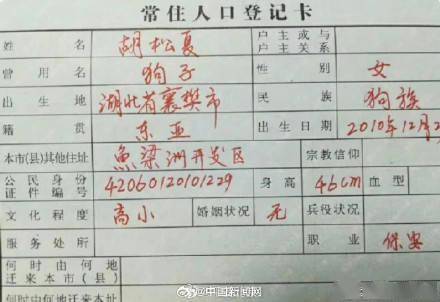 常住人口登记卡
姓名 胡松夏 户主或与户主关系
曾用名 狗子 性别 女
出生地 湖北省襄樊市 民族 狗族
籍贯 东亚 出生日期 2010年12月2
本市(县)其他住址 鱼梁洲开发区 宗教信仰
公民身份证件编号 42060120101229 身高 46cm 血型
文化程度 高小 婚姻状况 无 兵役状况
服务处所 职业 保安
何时由何地迁来本市(县)
何时由何地迁来本址
@中国新闻网